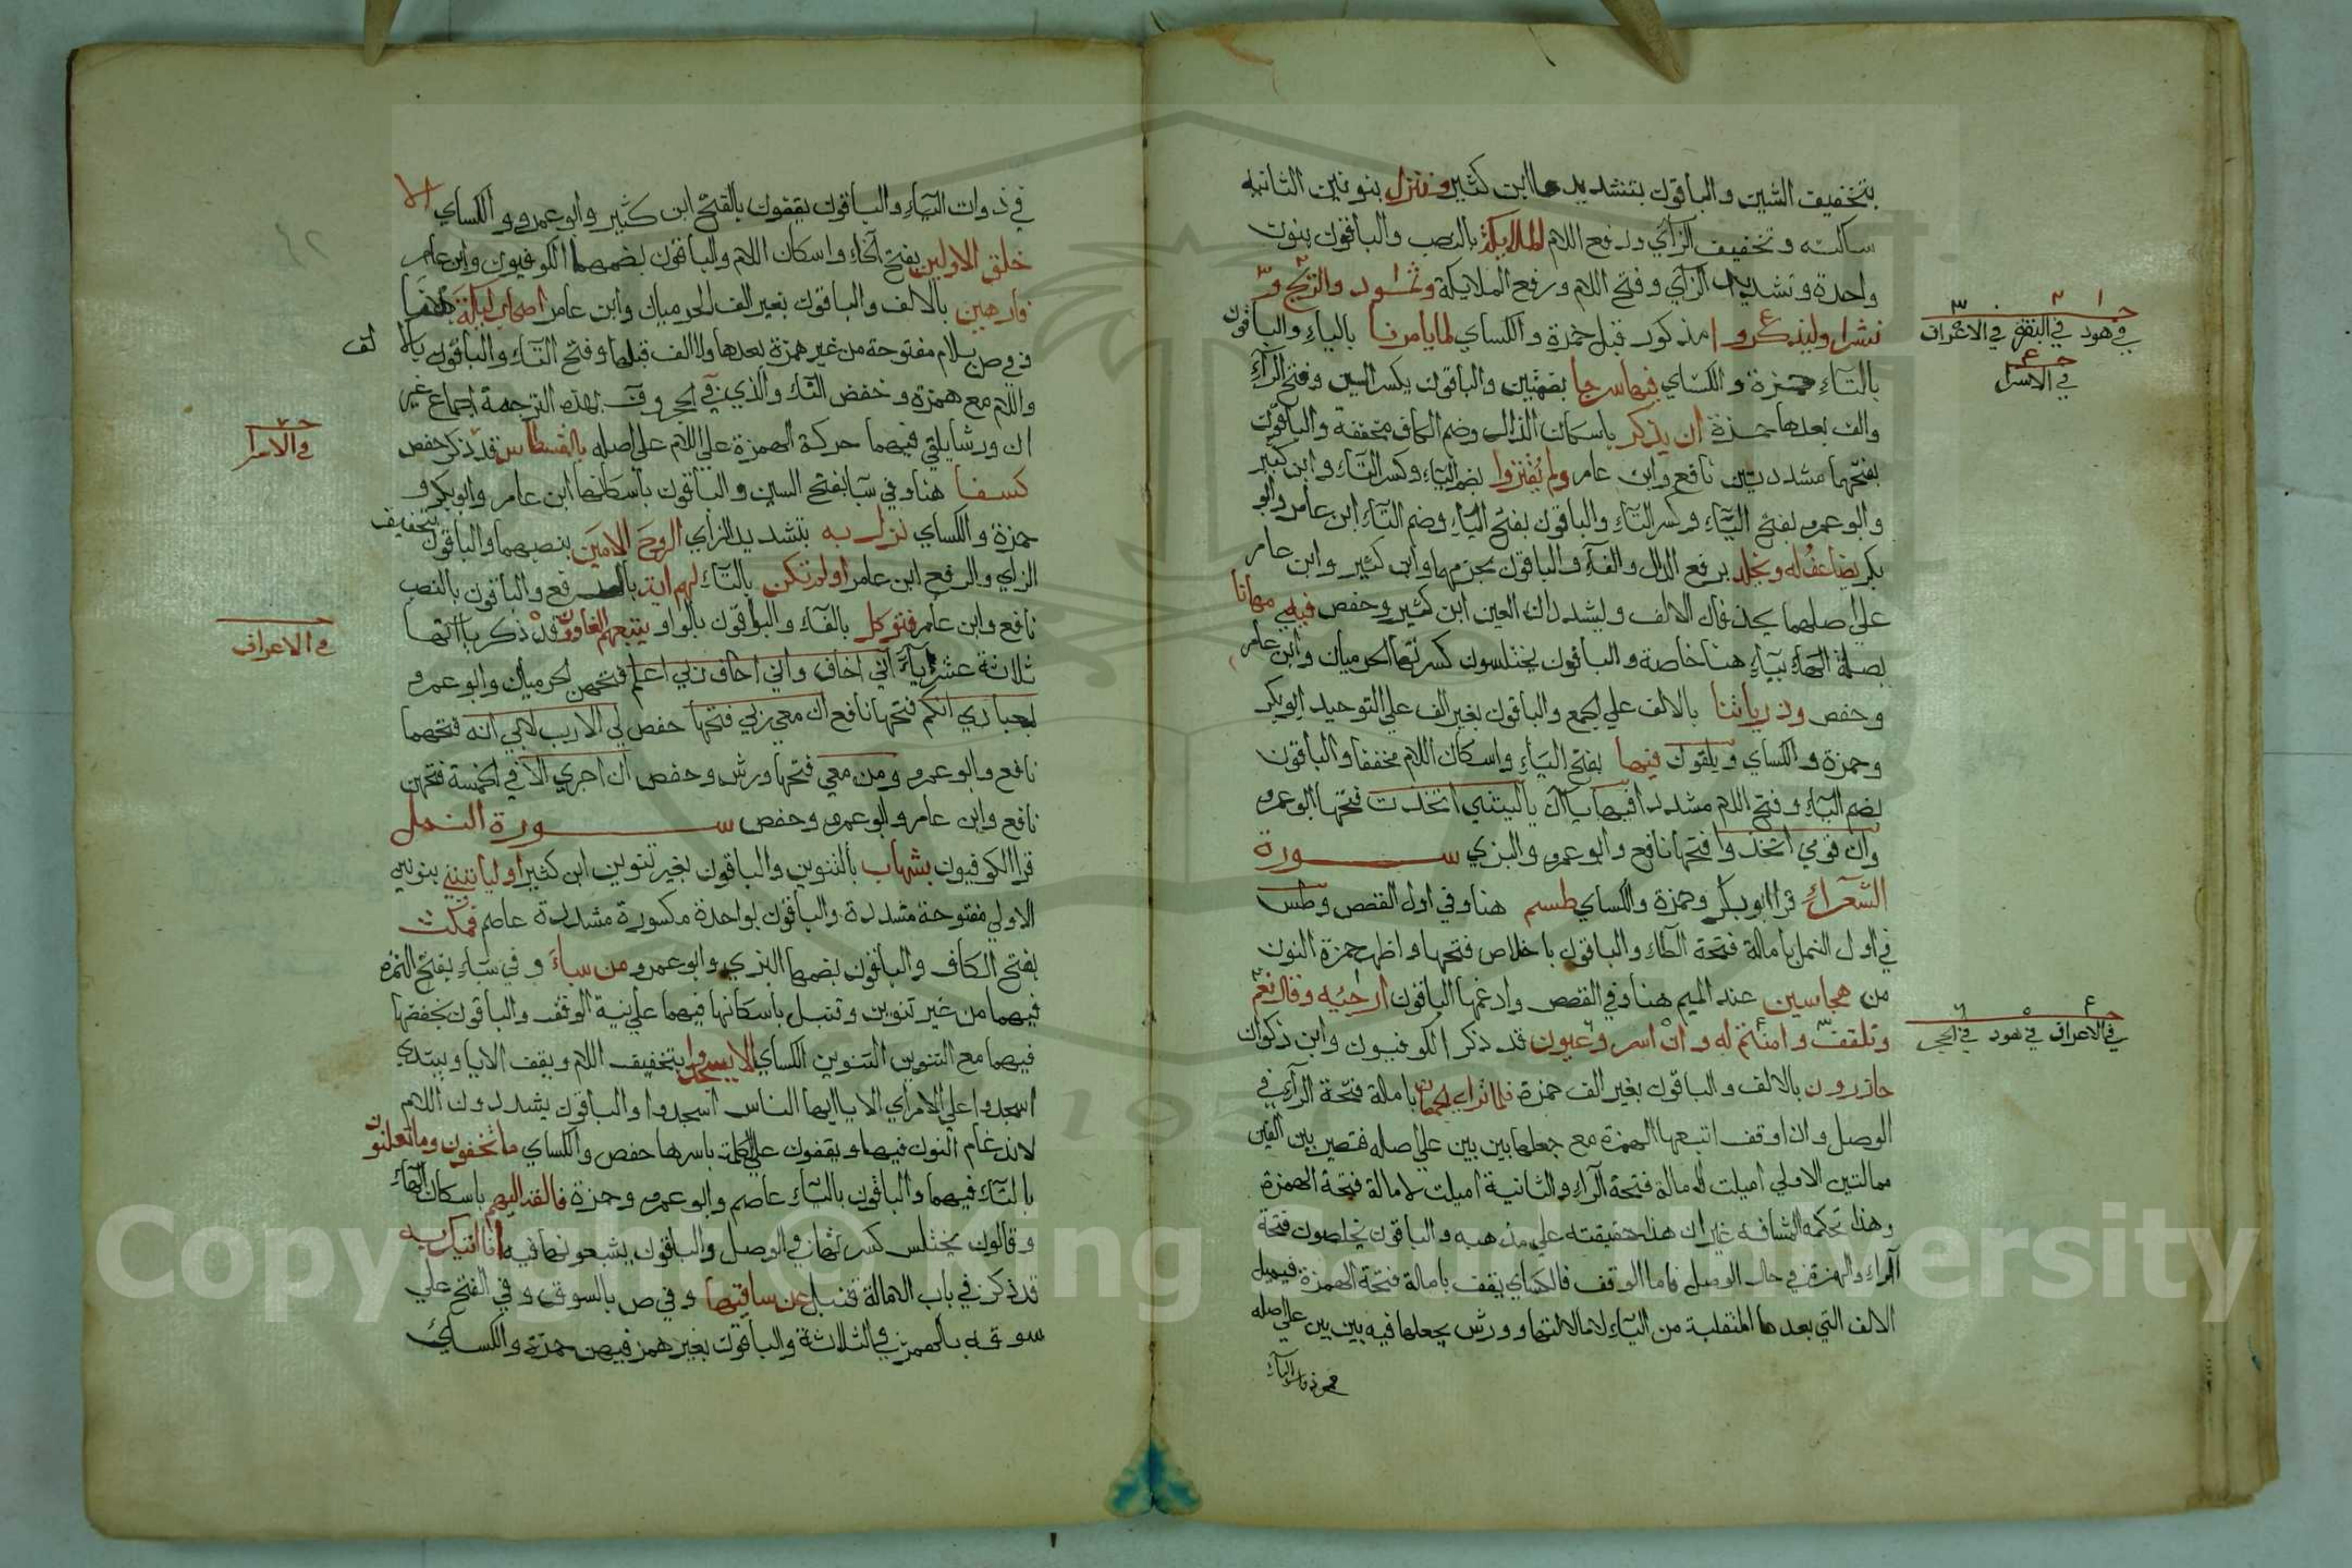 بتخفيف الشين والباقون بتشديدها ابن كثير وننزل بنونين الثانية
ساكنة وتخفيف الزاي ورفع اللام الملايكة بالنصب والباقون بنون
واحدة وتشديد الزاي وفتح اللام ورفع الملايكة وثمود والريح و
نشرا وليذكروا مذكور قبل حمزة والكساي لما يامرنا بالياء والباقون
بالتاء حمزة والكساي فيها سرجا بضمتين والباقون بكسر السين وفتح الراء
والف بعدها حمزة ان يذكر باسكان الذال وضم الكاف مخففة والباقون
بفتحهما مشددتين نافع وابن عامر ولم يقتروا بضم الياء وكسر التاء وابن كثير
وابو عمرو بفتح الياء وكسر التاء والباقون بفتح الياء وضم التاء ابن عامر وابو
بكر يضاعف له ويخلد برفع الدال والفاء والباقون بجزمهما وابن كثير وابن عامر
علي اصلهما يحذفان الالف ويشددان العين ابن كثير وحفص فيه مهانا
بصلة الهاء بياء هنا خاصة والباقون يختلسون كسرتها الحرميان وابن عامر
وحفص وذرياتنا بالالف علي الجمع والباقون بغير الف علي التوحيد ابو بكر
وحمزة والكساي ويلقون فيها بفتح الياء واسكان اللام مخففا والباقون
بضم الياء وفتح اللام مشددا فيها ياآن ياليتني اتخذت فتحها ابو عمرو
وان قومي اتخذوا فتحها نافع وابو عمرو والبزي سورة
الشعراء قرا ابو بكر وحمزة والكساي طسم هنا وفي اول القصص وطس
في اول النمل بامالة فتحة الطاء والباقون باخلاص فتحها واظهر حمزة النون
من هجا سين عند الميم هنا وفي القصص وادغمها الباقون ارجئه وقال نعم
وتلقف وامنتم له وان اسر وعيون قد ذكر الكوفيون وابن ذكوان
حاذرون بالالف والباقون بغير الف حمزة فلما تراي الجمعان بامالة فتحة الراء في
الوصل واذا وقف اتبعها الهمزة مع جعلها بين بين علي اصله فتصير بين الفين
ممالتين الاولي اميلت لامالة فتحة الراء والثانية اميلت لامالة فتحة الهمزة
وهذا تحكمه المشافهة غير ان هذا حقيقته علي مذهبه والباقون يخلصون فتحة
الراء والهمزة في حال الوصل فاما الوقف فالكساي يقف بامالة فتحة الهمزة فيميل
الالف التي بعدها المنقلبة من الياء لامالتها وورش يجعلها فيه بين بين علي اصله
في ذوات الياء
في هود في الفرقان في الاعراف
في الاسرا
في الاعراف في هود في الحجر
في ذوات الياء والباقون يقفون بالفتح ابن كثير وابو عمرو والكساي الا
خلق الاولين بفتح الخاء واسكان اللام والباقون بضمهما الكوفيون وابن عامر
فارهين بالالف والباقون بغير الف الحرميان وابن عامر اصحاب ليكة هنا
وفي ص بلام مفتوحة من غير همزة بعدها ولا الف قبلها وفتح التاء والباقون بالالف
واللام مع همزة وخفض التاء والذي في الحجر وق بهذه الترجمة اجماع غير
ان ورشا يلقي فيهما حركة الهمزة علي اللام علي اصله بالقسطاس قد ذكر حفص
كسفا هنا وفي سبا بفتح السين والباقون باسكانها ابن عامر وابو بكر و
حمزة والكساي نزل به بتشديد الزاي الروح الامين بنصبهما والباقون بتخفيف
الزاي والرفع ابن عامر اولم تكن بالتاء لهم اية بالرفع والباقون بالنصب
نافع وابن عامر فتوكل بالفاء والباقون بالواو يتبعهم الغاوون قد ذكر ياآتها
ثلاثة عشر ياء اني اخاف واني اخاف ربي اعلم فتحهن الحرميان وابو عمرو
بعبادي انكم فتحها نافع ان معي ربي فتحها حفص لي الا رب لابي انه فتحهما
نافع وابو عمرو ومن معي فتحها ورش وحفص ان اجري الا في الخمسة فتحهن
نافع وابن عامر وابو عمرو وحفص سورة النمل
قرا الكوفيون بشهاب بالتنوين والباقون بغير تنوين ابن كثير اوليا تينني بنونين
الاولي مفتوحة مشددة والباقون بواحدة مكسورة مشددة عاصم فمكث
بفتح الكاف والباقون بضمها البزي وابو عمرو من سباء وفي سباء بفتح الهمزة
فيهما من غير تنوين وقنبل باسكانها فيهما علي نية الوقف والباقون بخفضها
فيهما مع التنوين التنوين الكساي الا يسجدوا بتخفيف اللام ويقف الا يا ويبتدي
اسجدوا علي الامر اي الا يا ايها الناس اسجدوا والباقون يشددون اللام
لاندغام النون فيها ويقفون علي الكلمة باسرها حفص والكساي ما تخفون وما تعلنون
بالتاء فيهما والباقون بالياء عاصم وابو عمرو وحمزة فالقه اليهم باسكان الهاء
وقالون يختلس كسرتها في الوصل والباقون يشبعونها فيه انا اتيك به
قد ذكر في باب الامالة قنبل عن ساقيها وفي ص بالسوق وفي الفتح علي
سوقه بالهمز في الثلاثة والباقون بغير همز فيهن حمزة والكساي
في الاسرا
في الاعراف
Copyright © King Saud University
1957